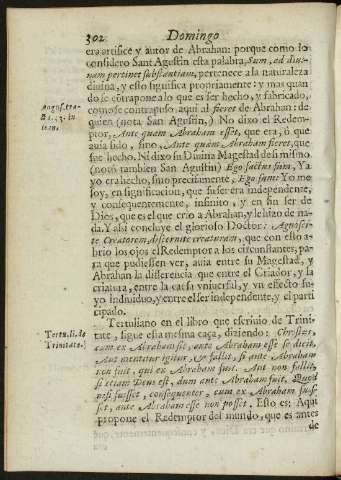 302 Domingo
era artifice y autor de Abrahan: porque como lo
considero Sant Agustin esta palabra, Sum, ad diui-
nam pertinet substantiam, pertenece a la naturaleza
diuina, y esto significa propiamente: y mas quan-
do se côtrapone a lo que es ser hecho, y fabricado,
como se contrapuso, aqui al fieret de Abrahan: de
quien (nota San Agustin,) No dixo el Redem-
ptor, Ante quam Abraham esset, que era, ô que
auia sido, sino Ante quàm Abraham fieret, que
fue hecho. Ni dixo su Diuina Magestad de si mismo.
(notò tambien San Agustin) Ego factus sum, Ya
yo era hecho, sino precisamente, Ego sum: Yo me
soy, en significacion, que su ser era independente,
y consequentemente, infinito, y en fin ser de
Dios, que es el que criò a Abrahan, y le hizo de na-
da. Y assi concluye el glorioso Doctor: Agnosci-
te Creatorem, discernite creaturam, que con esto a-
brio los ojos el Redemptor a los circunstantes, pa-
ra que pudiessen ver, auia entre su Magestad, y
Abrahan la differencia que entre el Criador, y la
criatura, entre la causa vniuersal, y vn effecto su-
yo indiuiduo, y entre el ser independente, y el parti
cipado.
Tertuliano en el libro que escriuio de Trini-
tate, sigue esta mesma caça, diziendo: Christus,
cum ex Abraham sit, ante Abraham esse se dicit,
Aut mentitur igitur, & fallit, si ante Abraham
non fuit, qui ex Abraham fuit. Aut non fallit,
si etiam Deus est, dum ante Abraham fuit. Quod
nisi fuisset, consequenter, cum ex Abraham fuis-
set, ante Abraham esse non posset. Esto es: Aqui
propone el Redemptor del mundo, que es antes
de
August. tra-
in
Ioan.
Tertu. li. de
Trinitate.